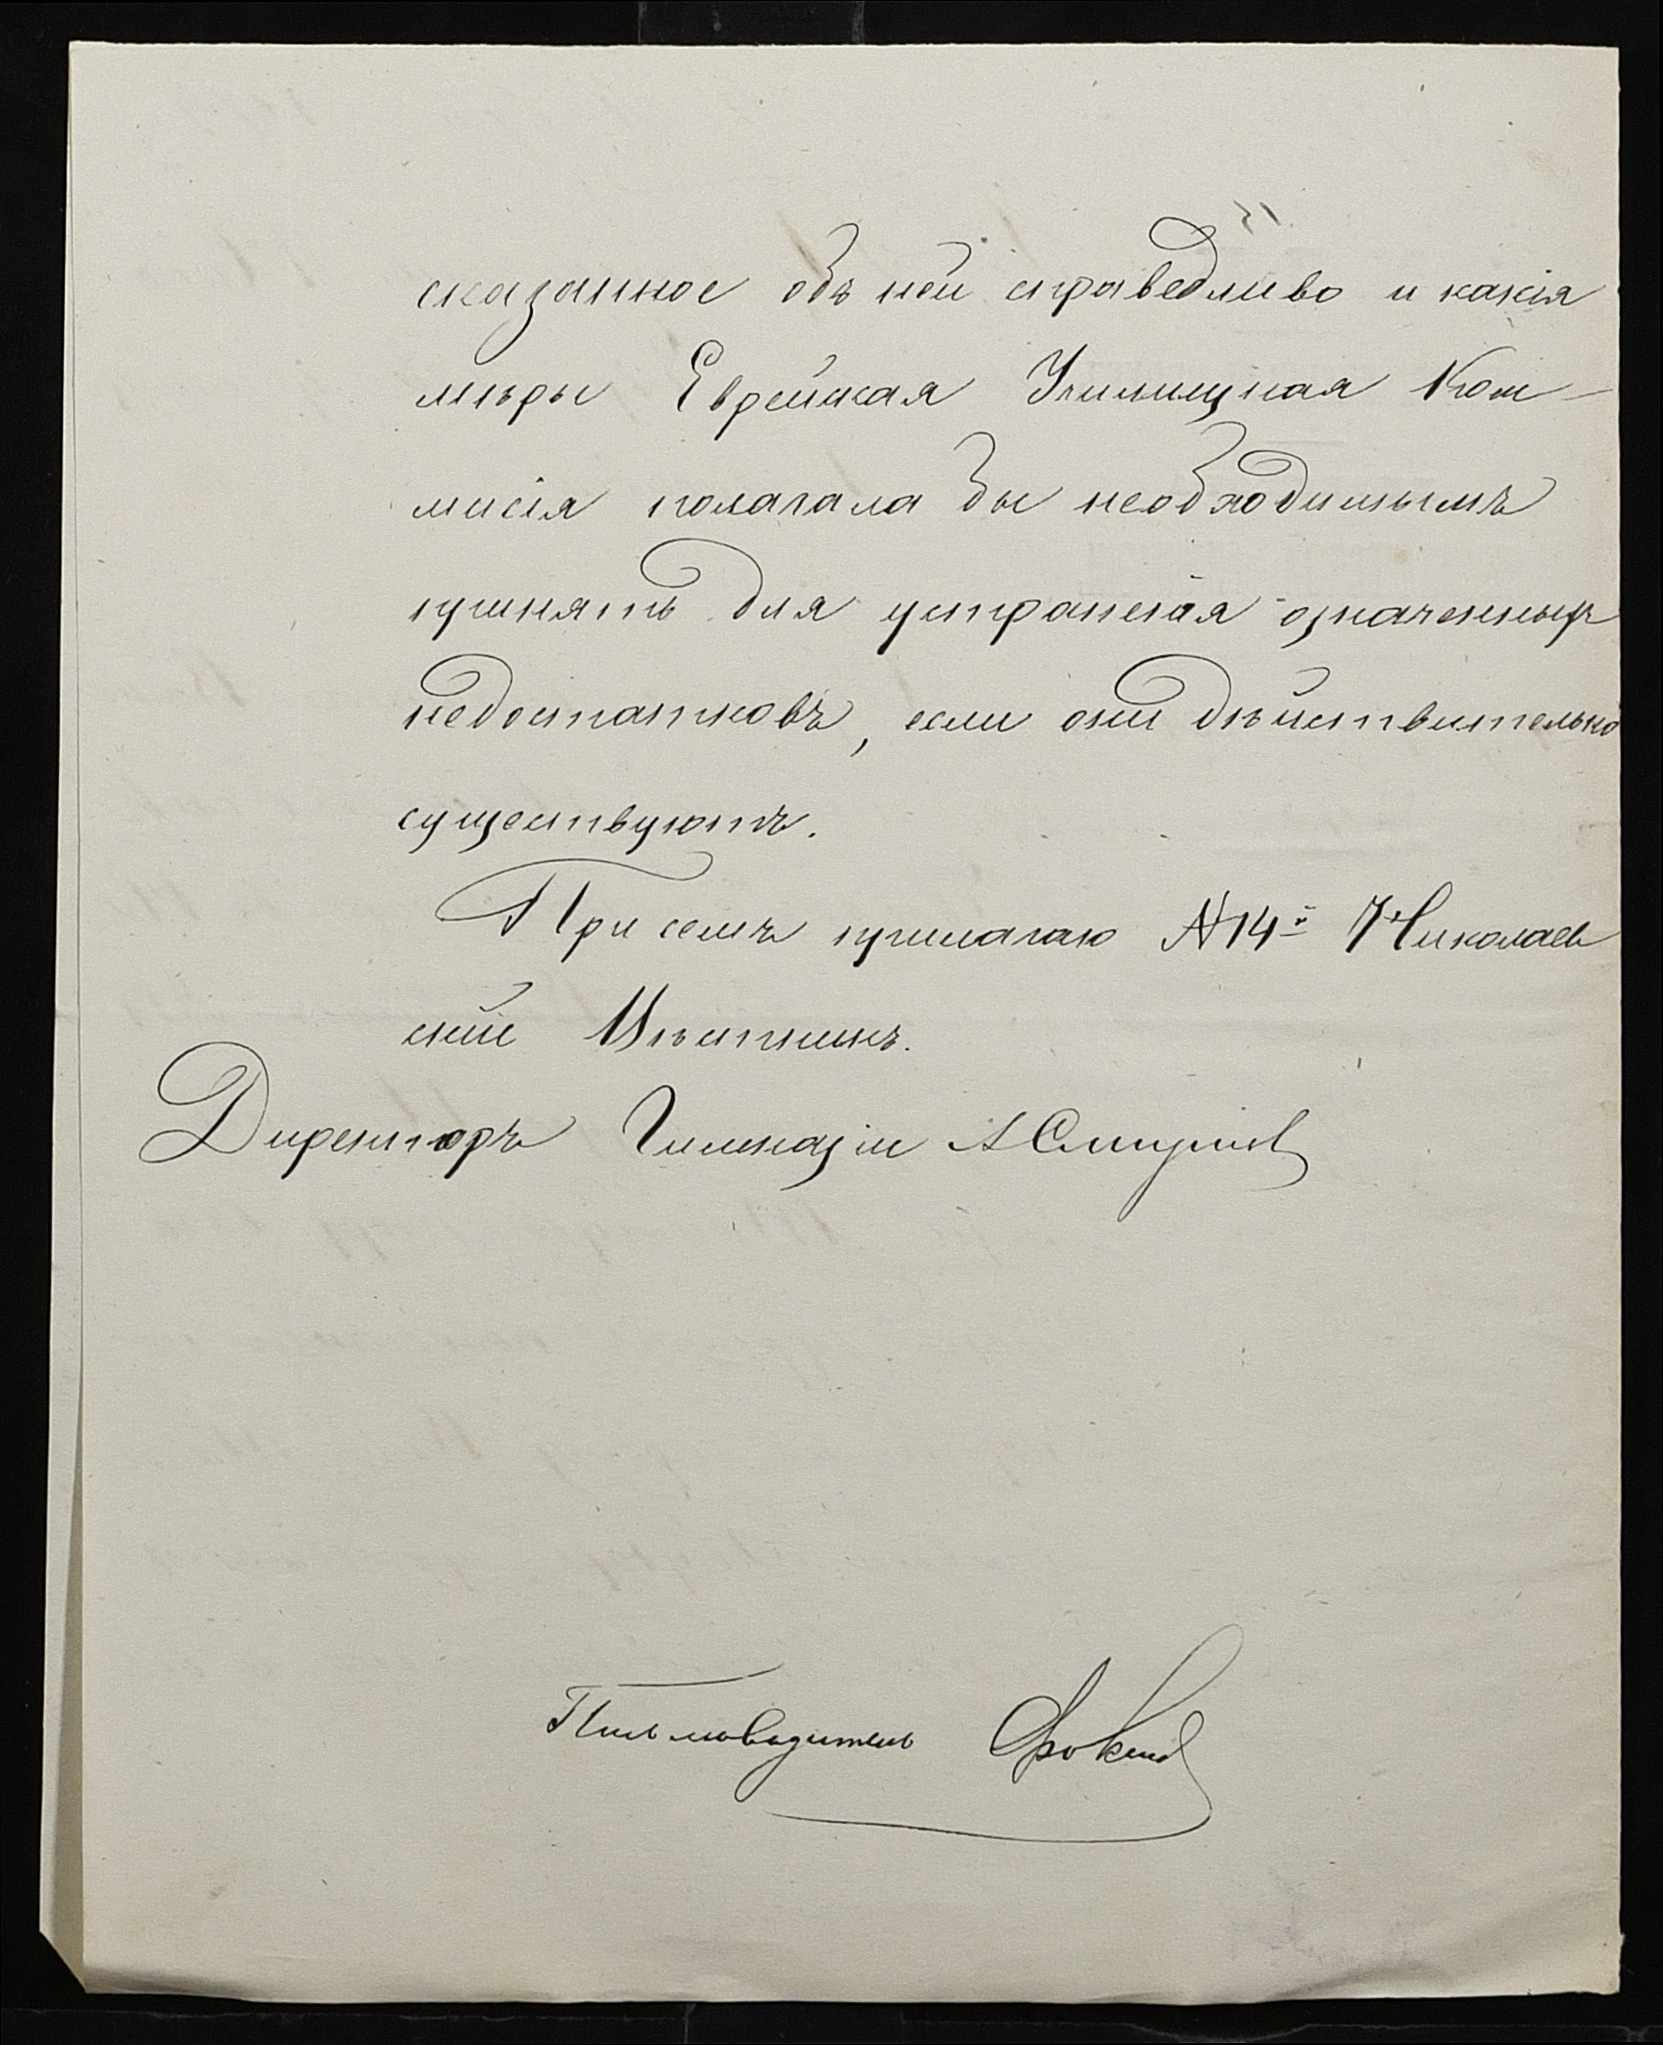 сказанное объ ней справедливо и какія
мѣры Еврейская Училищная Ком-
мисія полагала бы необходимымъ
принять для устраненія означенныхъ
недостатковъ, если они дѣйствительно
существуютъ.
При семъ прилагаю №14й Николаев
скій Вѣстникъ.
Директоръ Гимназіи А Смирнов
Письмоводитель